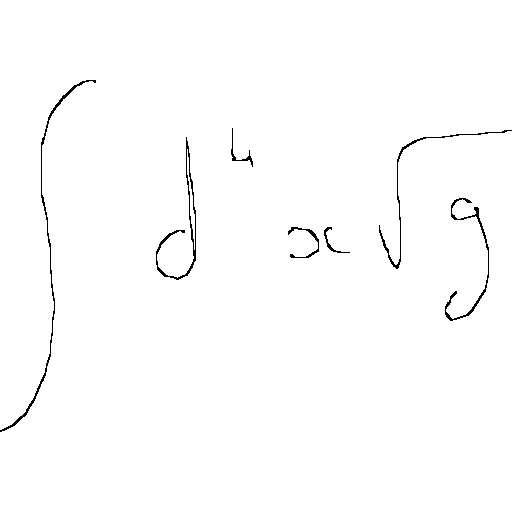 ∫ d⁴x √g